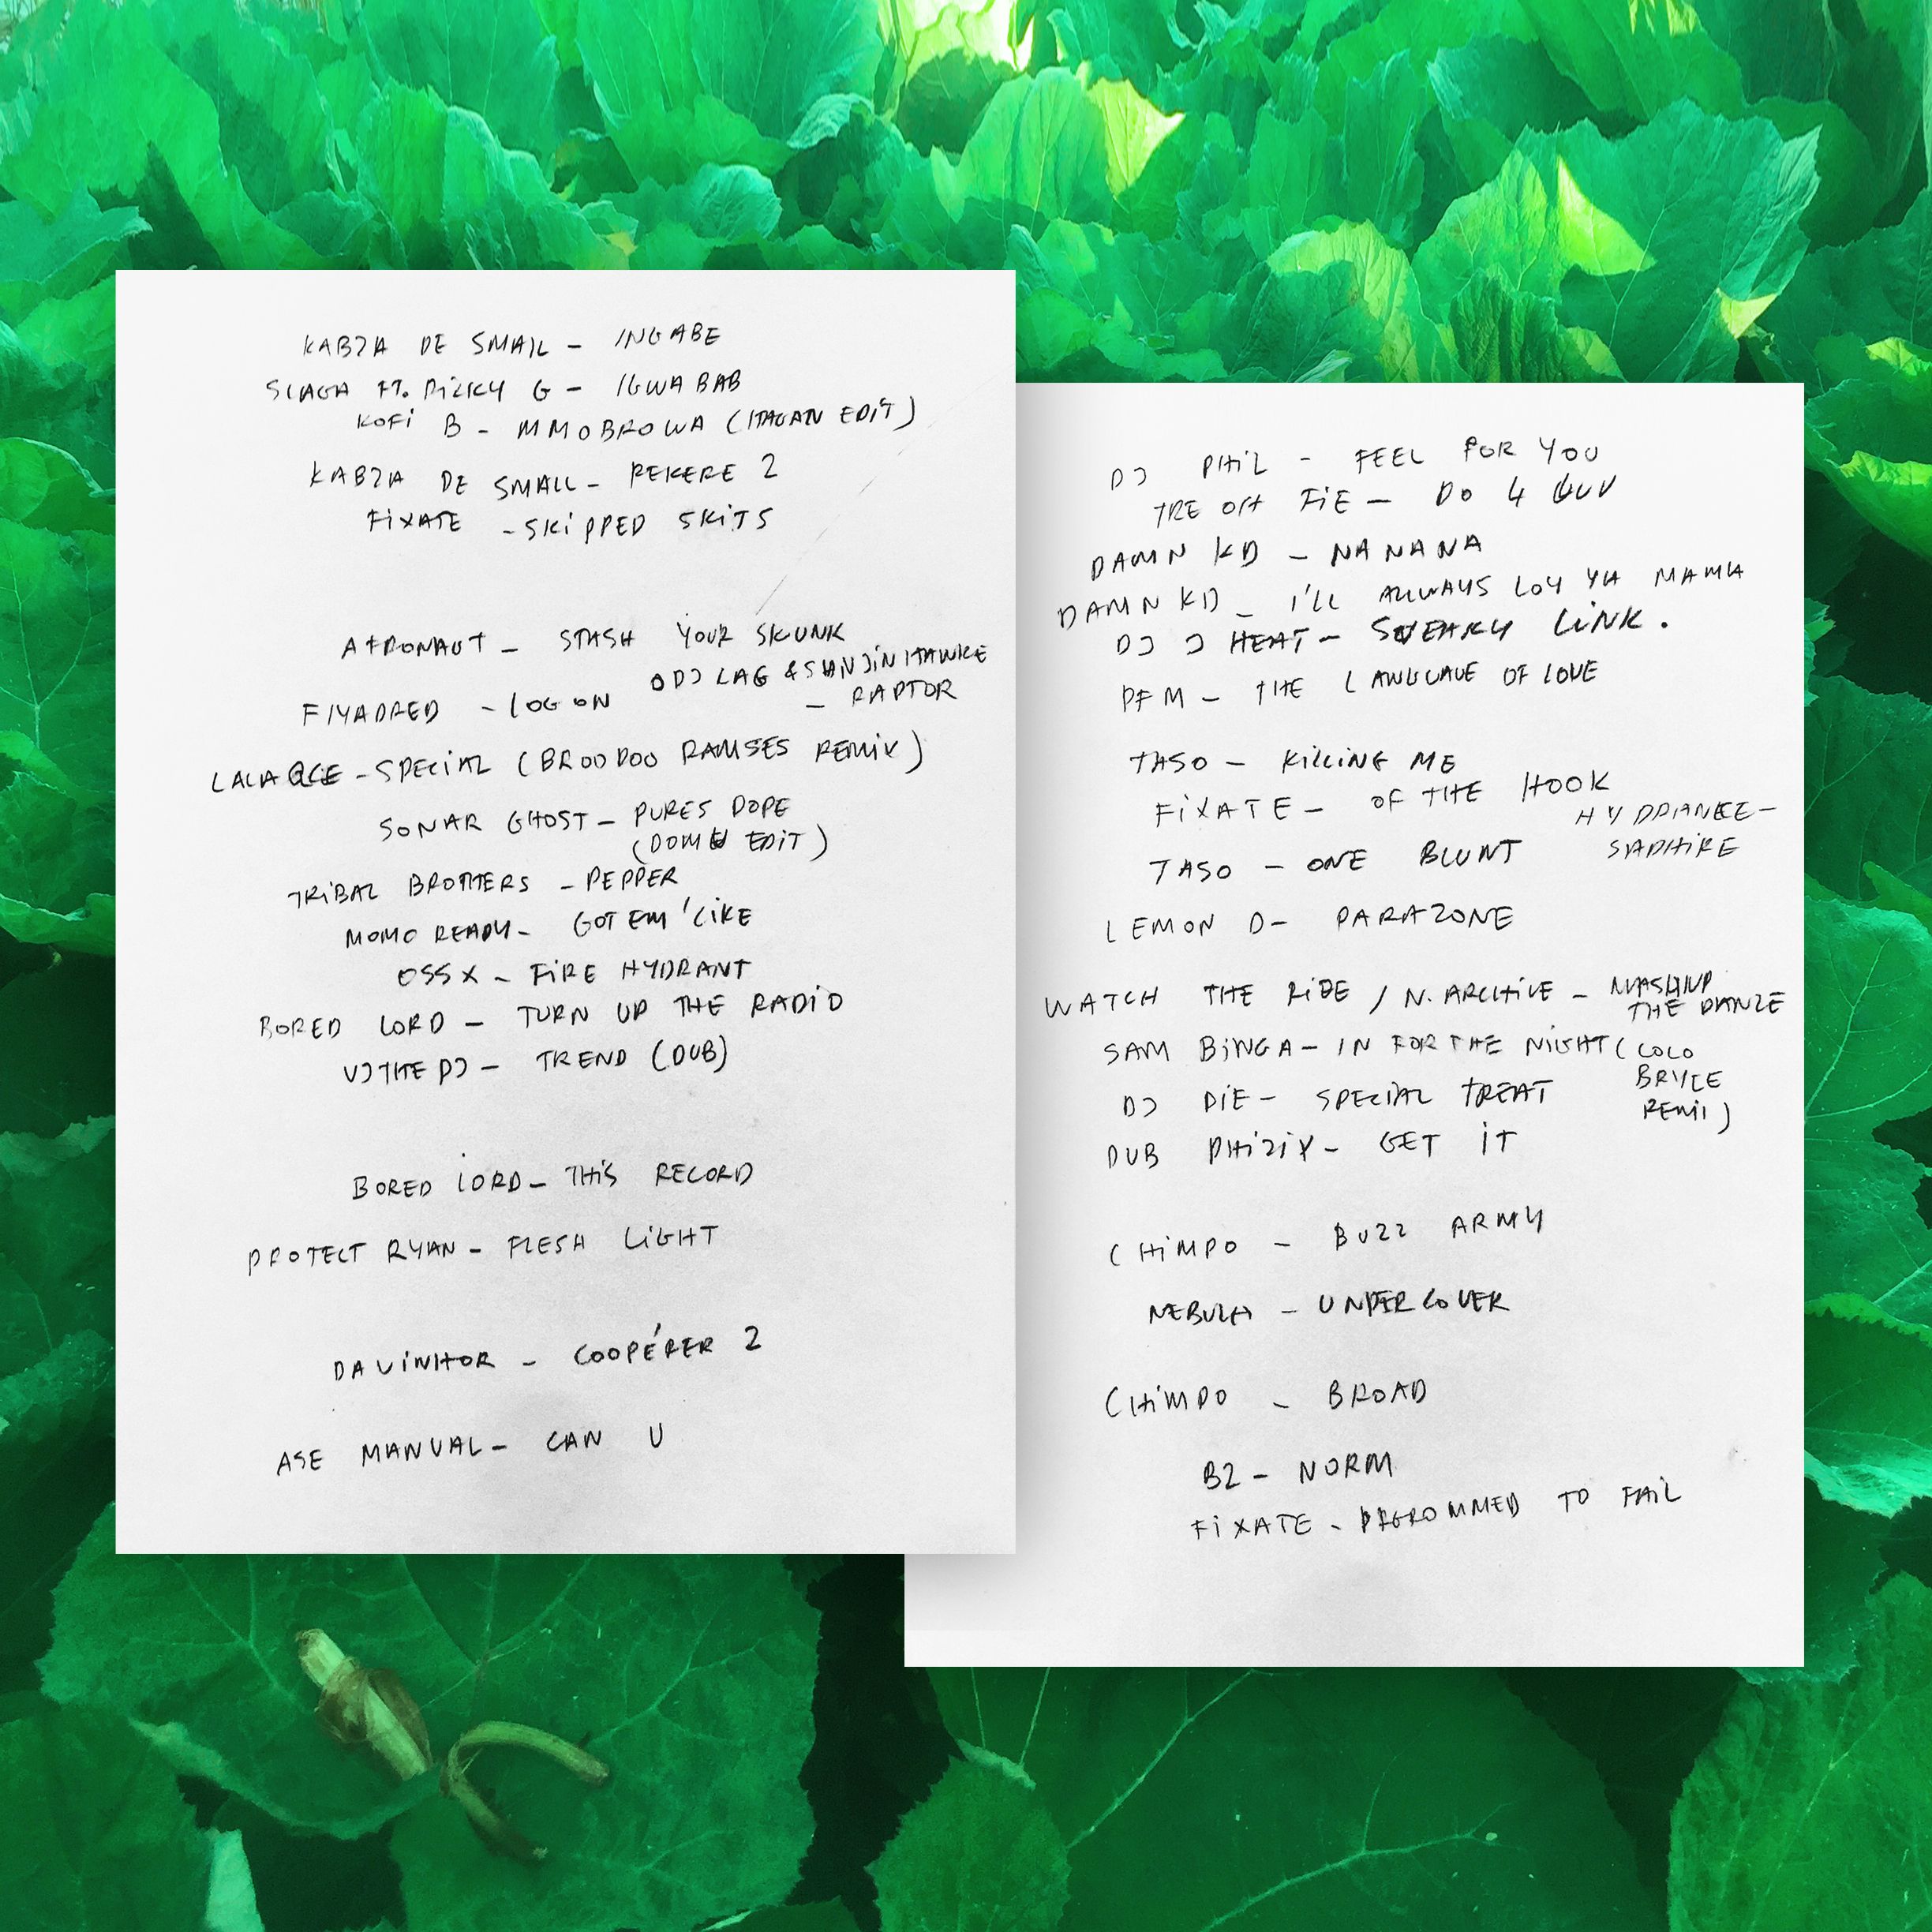 KABZA DE SMALL - INGABE
SCAGA FT. PILKY G - IGWABAB
KOFI B - MMOBROWA (ITAGAN EDIT)
KABZA DE SMALL - PEKERE 2
FIXATE - SKIPPED SKITS
ATRONAUT - STASH YOUR SKUNK
ODJ LAG & SHNJIN HAWKE
FIYADRED - LOG ON
- RAPTOR
LALA &CE - SPECIAL (BROODOO RAMSES REMIX)
SONAR GHOST - PURES DOPE
(DOM EDIT)
TRIBAL BROTHERS - PEPPER
MOMO READY - GOT EM 'LIKE
OSSX - FIRE HYDRANT
BORED LORD - TURN UP THE RADIO
VJTHEDJ - TREND (DUB)
BORED LORD - THIS RECORD
PROTECT RYAN - FLESH LIGHT
DAVINHOR - COOPÉRER 2
ASE MANUAL - CAN U
DJ PHIL - FEEL FOR YOU
TRE OH FIE - DO 4 LUV
DAMN KD - NA NA NA
DAMN KD - I'LL ALLWAYS LOV YA MAMA
DJ J HEAT - SNEAKY LINK.
PFM - THE LANGUAGE OF LOVE
TASO - KILLING ME
FIXATE - OF THE HOOK
HYDRANGEE -
SAPHIRE
TASO - ONE BLUNT
LEMON D - PARAZONE
WATCH THE RIDE / N. ARCHIVE - MASHUP
THE DANZE
SAM BINGA - IN FOR THE NIGHT (COCO
BRYCE
REMI)
DJ DIE - SPECIAL TREAT
DUB PHIZIX - GET IT
CHIMPO - BUZZ ARMY
NEBULA - UNDERCOVER
CHIMPO - BROAD
B2 - NORM
FIXATE - PRGROMMED TO FAIL